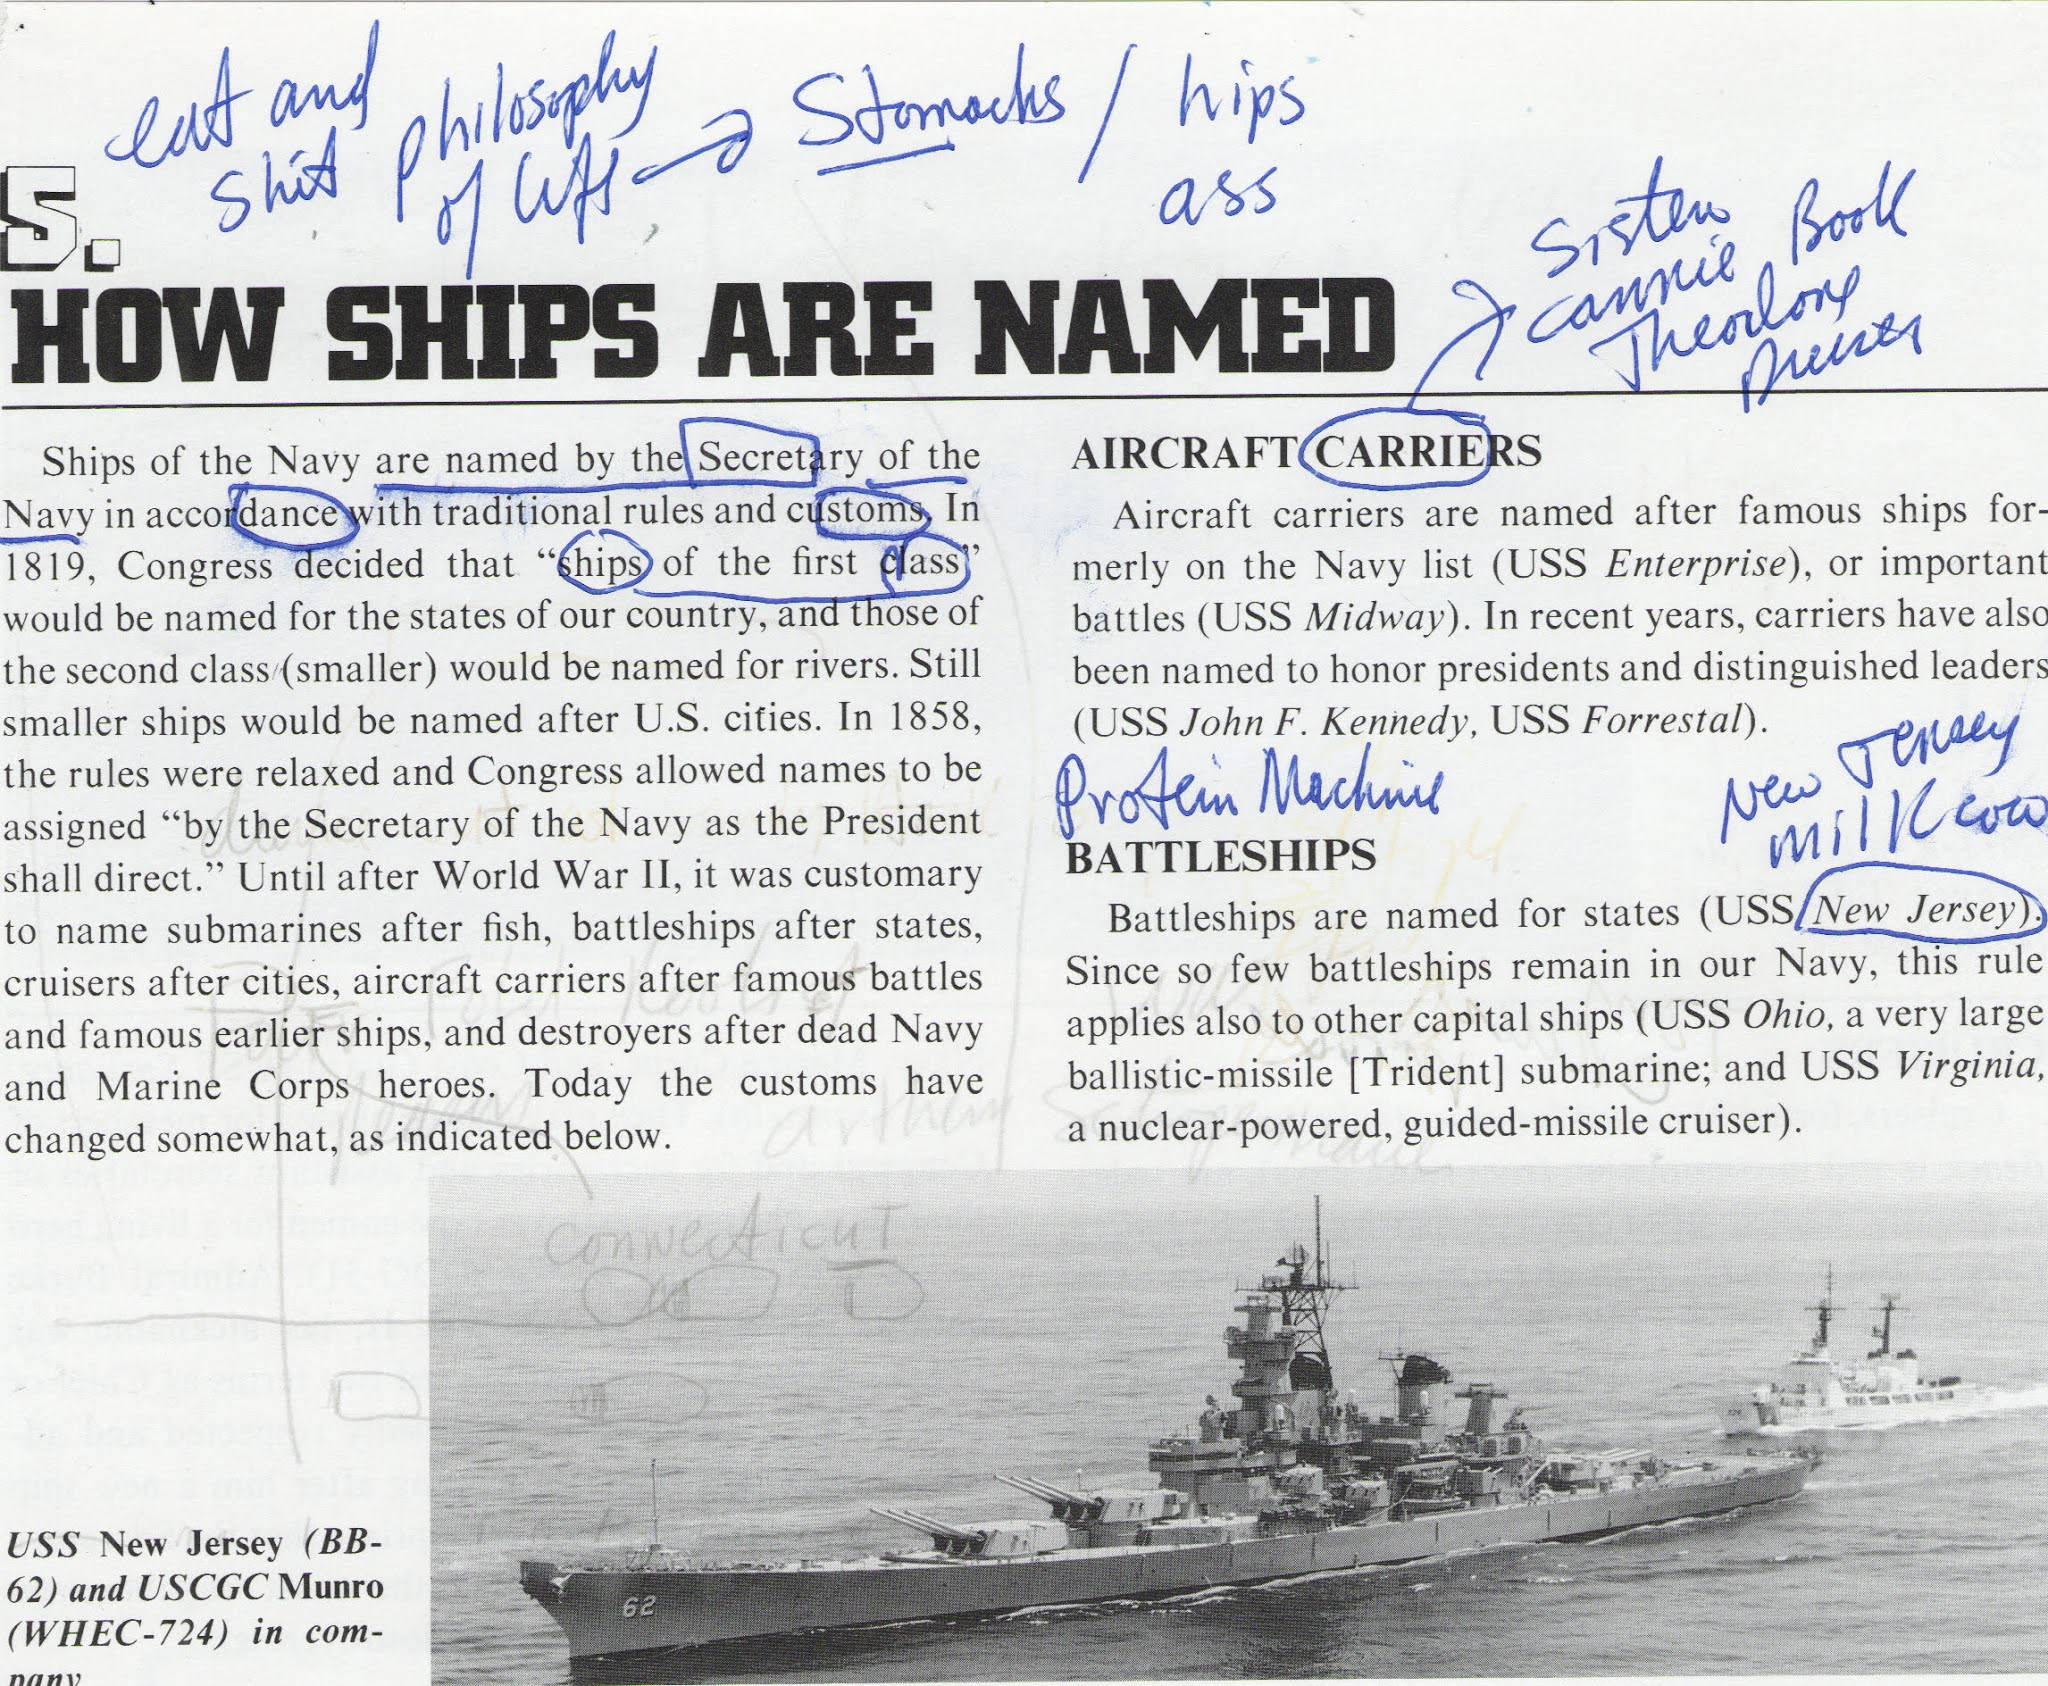 eat and
shit philosophy
of life → Stomachs / hips
ass
Sister
Carrie Book
Theodore
Dreiser
5.
HOW SHIPS ARE NAMED
Ships of the Navy are named by the Secretary of the
Navy in accordance with traditional rules and customs. In
1819, Congress decided that “ships of the first class”
would be named for the states of our country, and those of
the second class (smaller) would be named for rivers. Still
smaller ships would be named after U.S. cities. In 1858,
the rules were relaxed and Congress allowed names to be
assigned “by the Secretary of the Navy as the President
shall direct.” Until after World War II, it was customary
to name submarines after fish, battleships after states,
cruisers after cities, aircraft carriers after famous battles
and famous earlier ships, and destroyers after dead Navy
and Marine Corps heroes. Today the customs have
changed somewhat, as indicated below.
AIRCRAFT CARRIERS
Aircraft carriers are named after famous ships for-
merly on the Navy list (USS Enterprise), or important
battles (USS Midway). In recent years, carriers have also
been named to honor presidents and distinguished leaders
(USS John F. Kennedy, USS Forrestal).
Protein Machine
New Jersey
Milk cow
BATTLESHIPS
Battleships are named for states (USS New Jersey).
Since so few battleships remain in our Navy, this rule
applies also to other capital ships (USS Ohio, a very large
ballistic-missile [Trident] submarine; and USS Virginia,
a nuclear-powered, guided-missile cruiser).
Connecticut
62
USS New Jersey (BB-
62) and USCGC Munro
(WHEC-724) in com-
pany